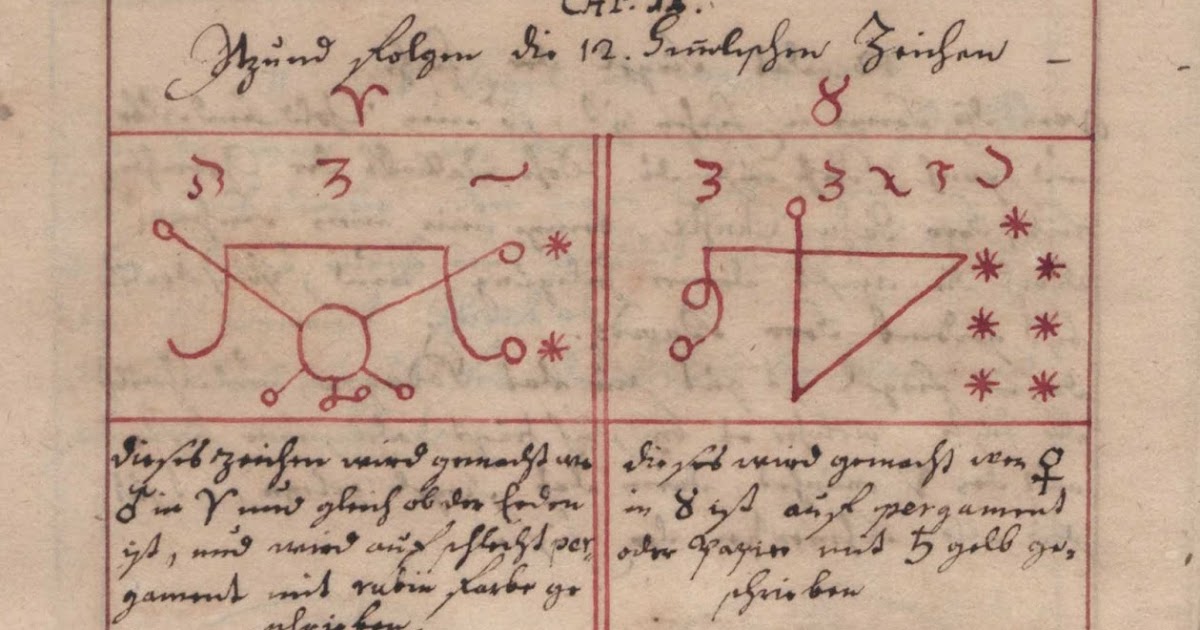 Itzund folgen die 12. Himlischen Zeichen
♈ ♉
dieses zeichen wird gemacht wen
♂ in ♈ und gleich ob der Erden
ist, und wird auf schlecht per,
gament mit rubin farbe ge
schrieben.
dieses wird gemacht wen ♀
in ♉ ist auf pergament
oder Papier mit ♄ gelb ge,
schrieben